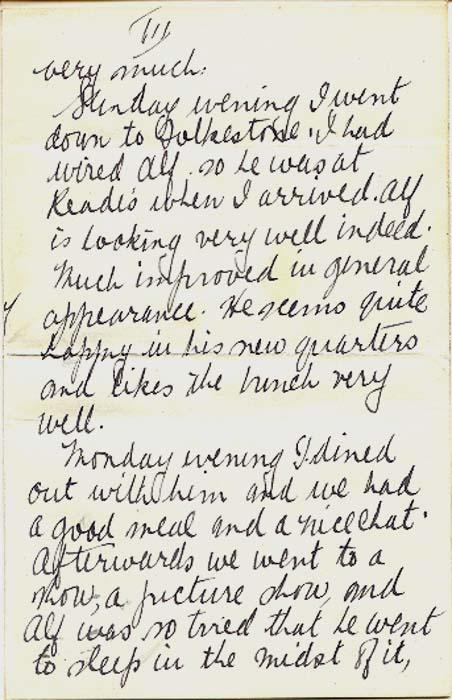 III
very much.
Sunday evening I went
down to Folkestone. I had
wired Alf. so he was at
when I arrived. Alf
is looking very well indeed.
Much improved in general
appearance. He seems quite
happy in his new quarters
and likes the bunch very
well.
Monday evening I dined
out with him and we had
a good meal and a nice chat.
Afterwards we went to a
show, a picture show, and
Alf was so tired that he went
to sleep in the midst of it,